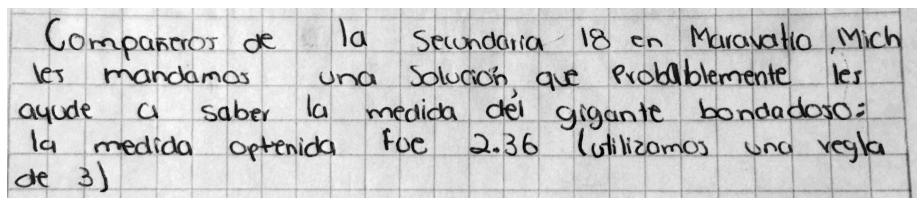 Compañeros de la Secundaria 18 en Maravatio, Mich
les mandamos una Solución que Probablemente les
ayude a saber la medida del gigante bondadoso:
la medida optenida fue 2.36 (utilizamos una regla
de 3)